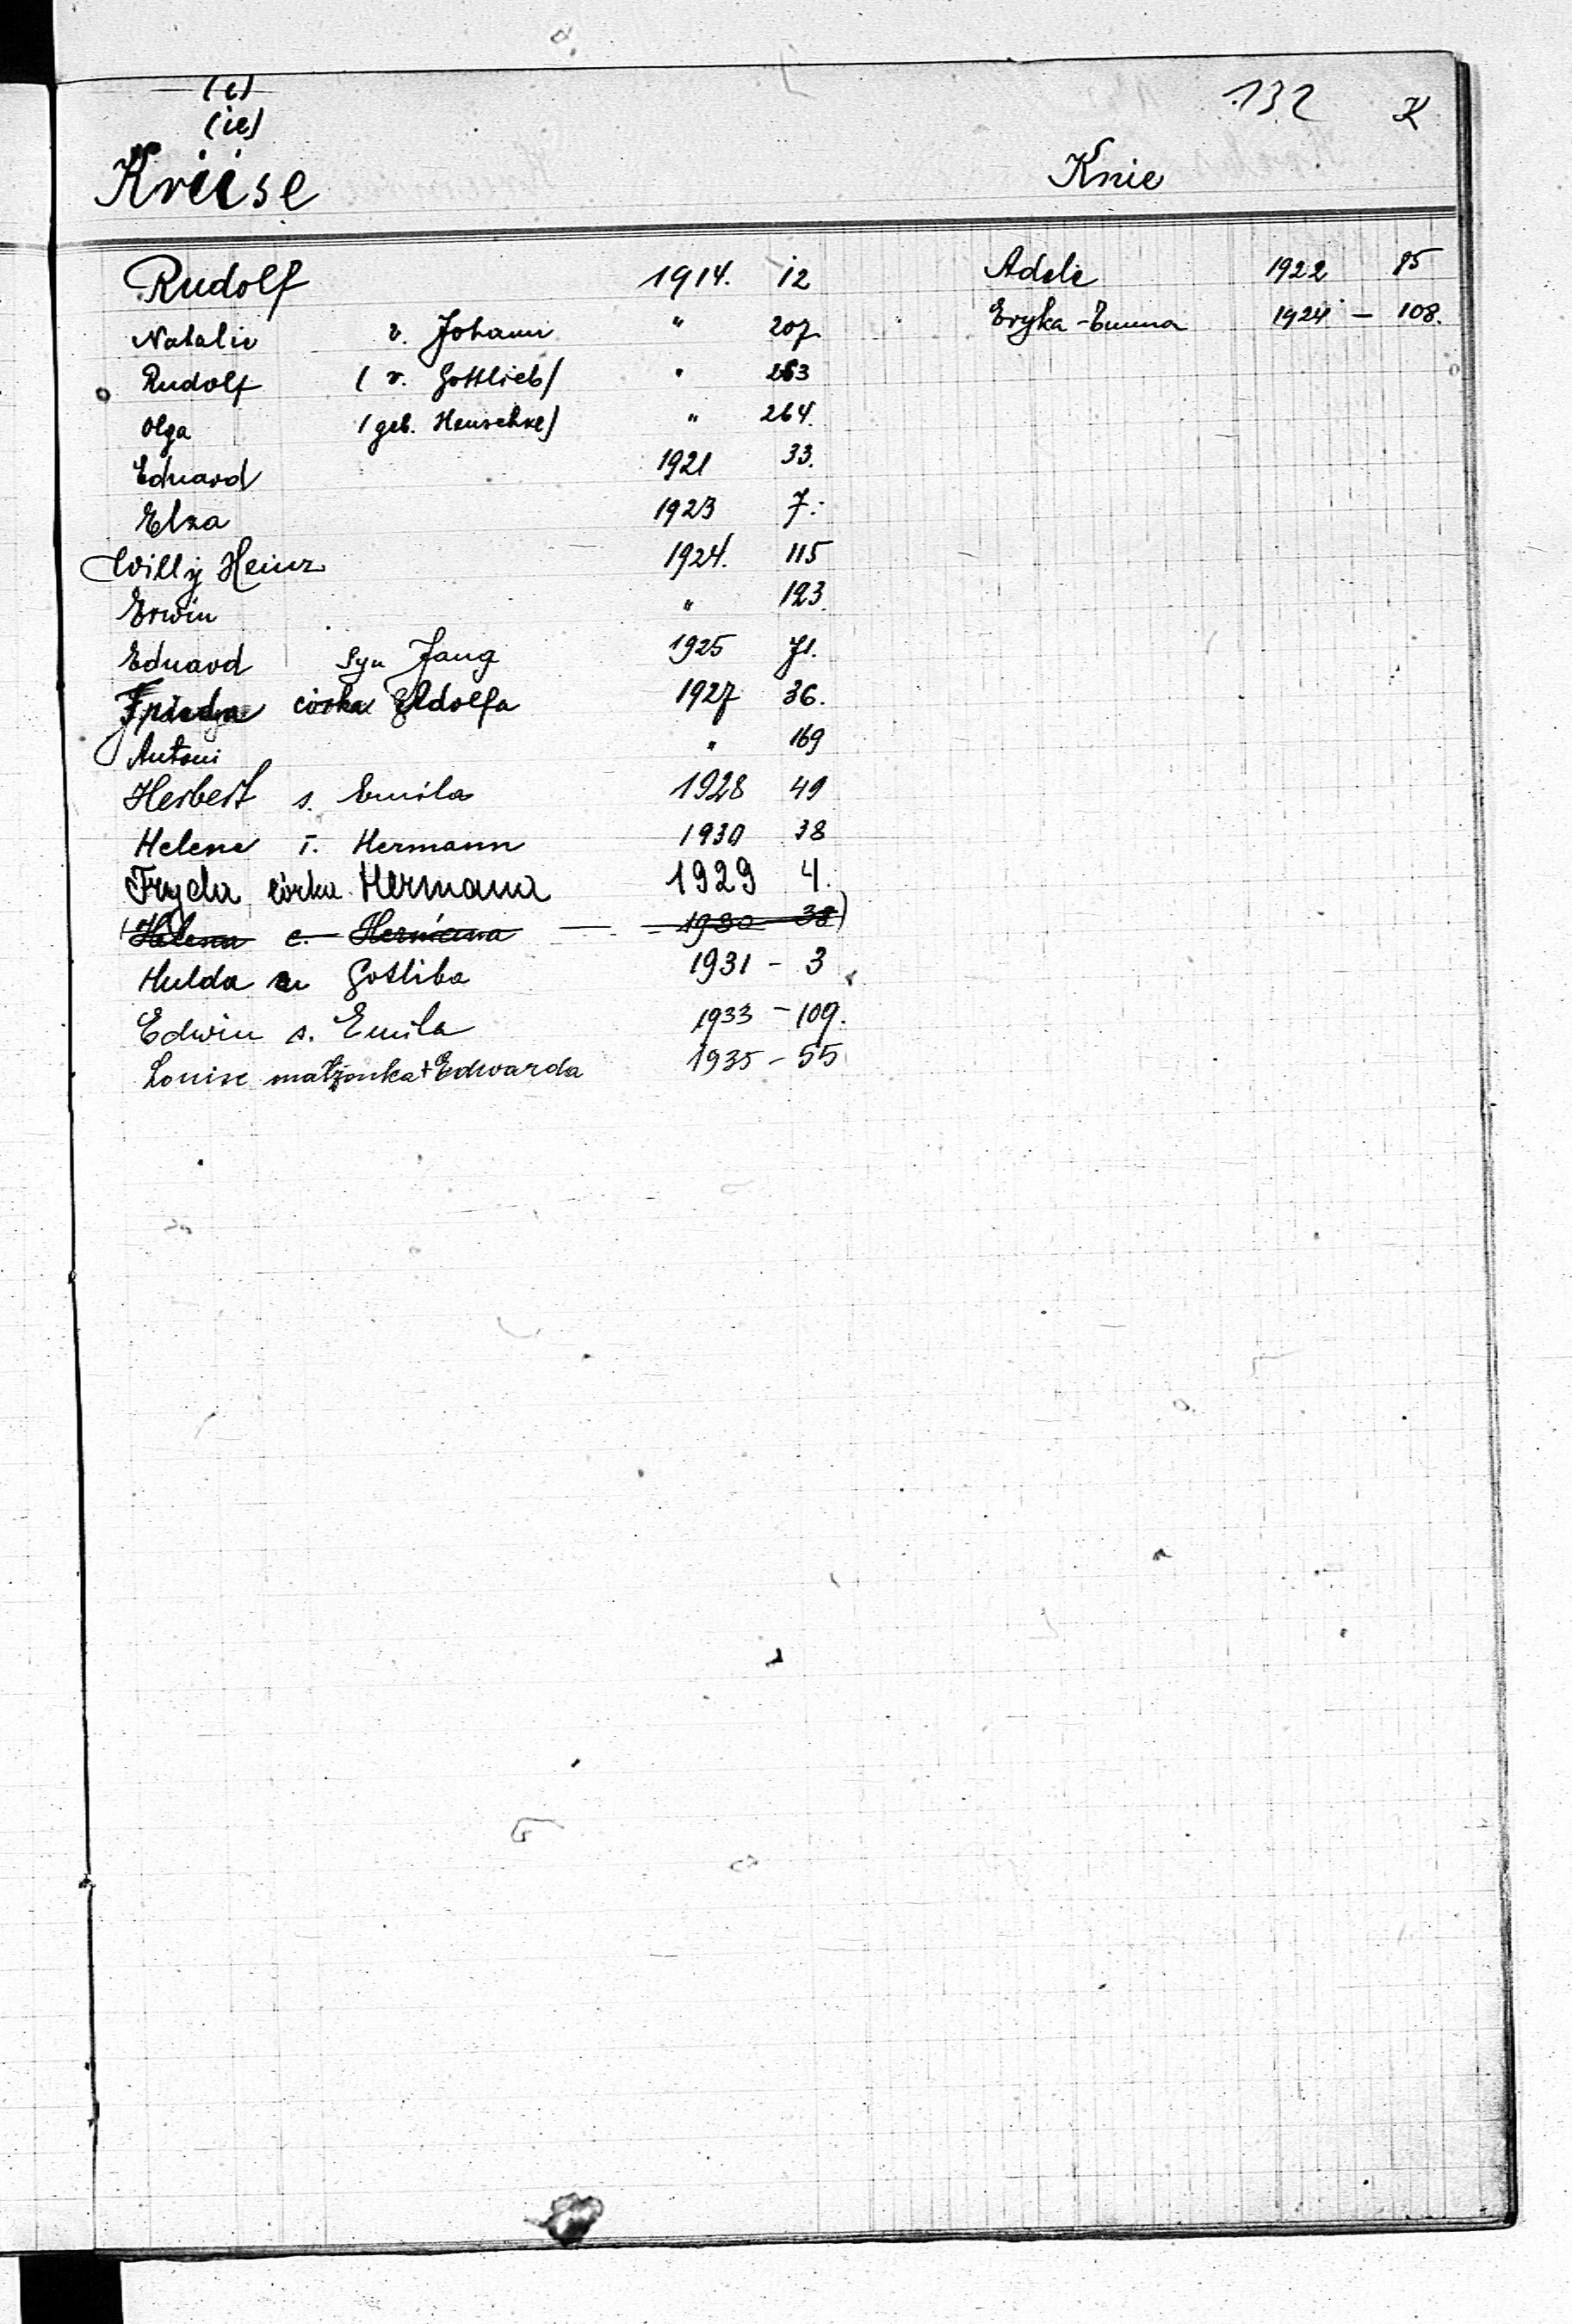 (e)
(ie)
132 K
Kriise
Knie
Rudolf 1914. 12
Natalie v. Johann " 207
Rudolf (v. Gottlieb) " 263
Olga (geb. Henschke) " 264.
Eduard 1921 33.
Elza 1923 7.-
Willy Heinz 1924. 115
Erwin " 123
Eduard syn Jana 1925 71.
Frieda córka Adolfa 1927 36.
Antoni " 169
Herbert s. Emila 1928 49
Helene T. Hermann 1930 38
Fryda córka Hermana 1929 4.
(Helena c. Hermana 1930 38)
Hulda Gotliba 1931 - 3
Edwin s. Emila 1933 - 109.
Louise małżonka + Edwarda 1935 - 55
Adele 1922 85
Eryka-Emma 1924 - 108.